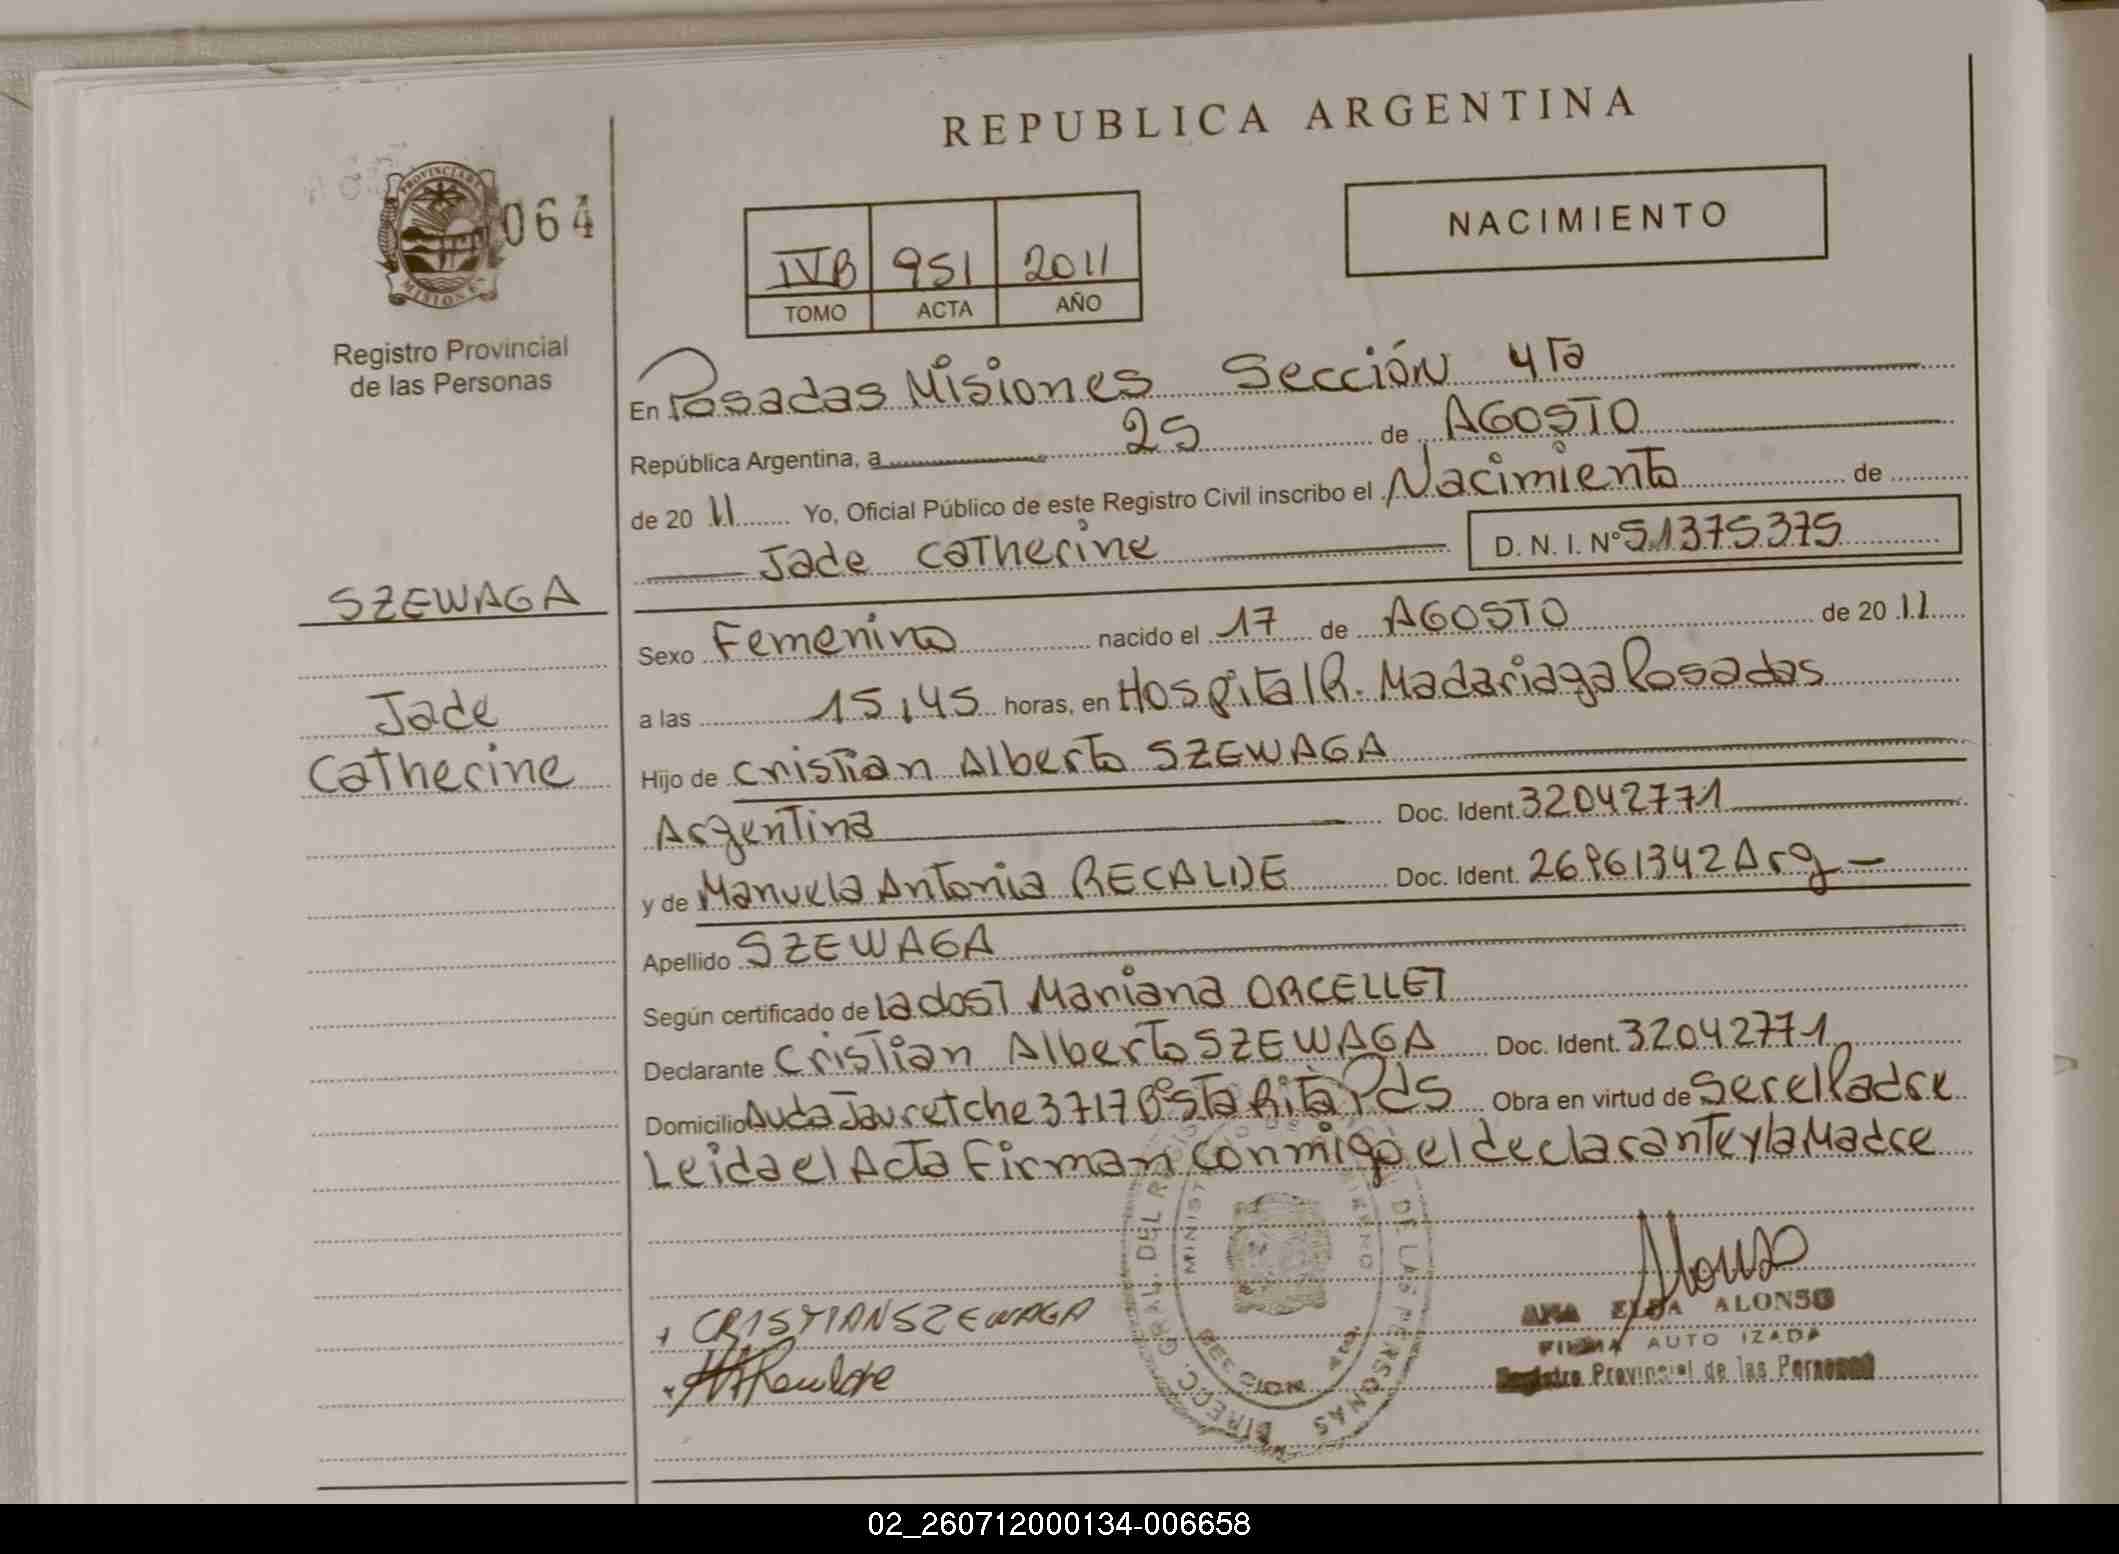 REPUBLICA ARGENTINA
PROVINCIA DE
MISIONES
064
Registro Provincial
de las Personas
IVB 951 2011
TOMO ACTA AÑO
NACIMIENTO
En Posadas Misiones Sección 4ta
República Argentina, a 25 de AGOSTO
de 20 11 Yo, Oficial Público de este Registro Civil inscribo el Nacimiento de
Jade Catherine D. N. I. Nº 51375375
SZEWAGA
Jade
Catherine
Sexo Femenino nacido el 17 de AGOSTO de 20 11
a las 15,45 horas, en Hospital R. Madariaga Posadas
Hijo de Cristian Alberto SZEWAGA
Argentina Doc. Ident. 32042771
y de Manuela Antonia RECALDE Doc. Ident. 26961342 Arg
Apellido SZEWAGA
Según certificado de la dost Mariana ORCELLET
Declarante Cristian Alberto SZEWAGA Doc. Ident. 32042771
Domicilio Avda Jauretche 3717 Bº Sta Rita Pds Obra en virtud de Ser el Padre
Leida el Acta Firman conmigo el declarante y la Madre
CRISTIAN SZEWAGA
DIRECC. GRAL. DEL REGISTRO DE LAS PERSONAS
Alonso
ANA ELBA ALONSO
FIRMA AUTO IZADA
Registro Provincial de las Personas
02_260712000134-006658